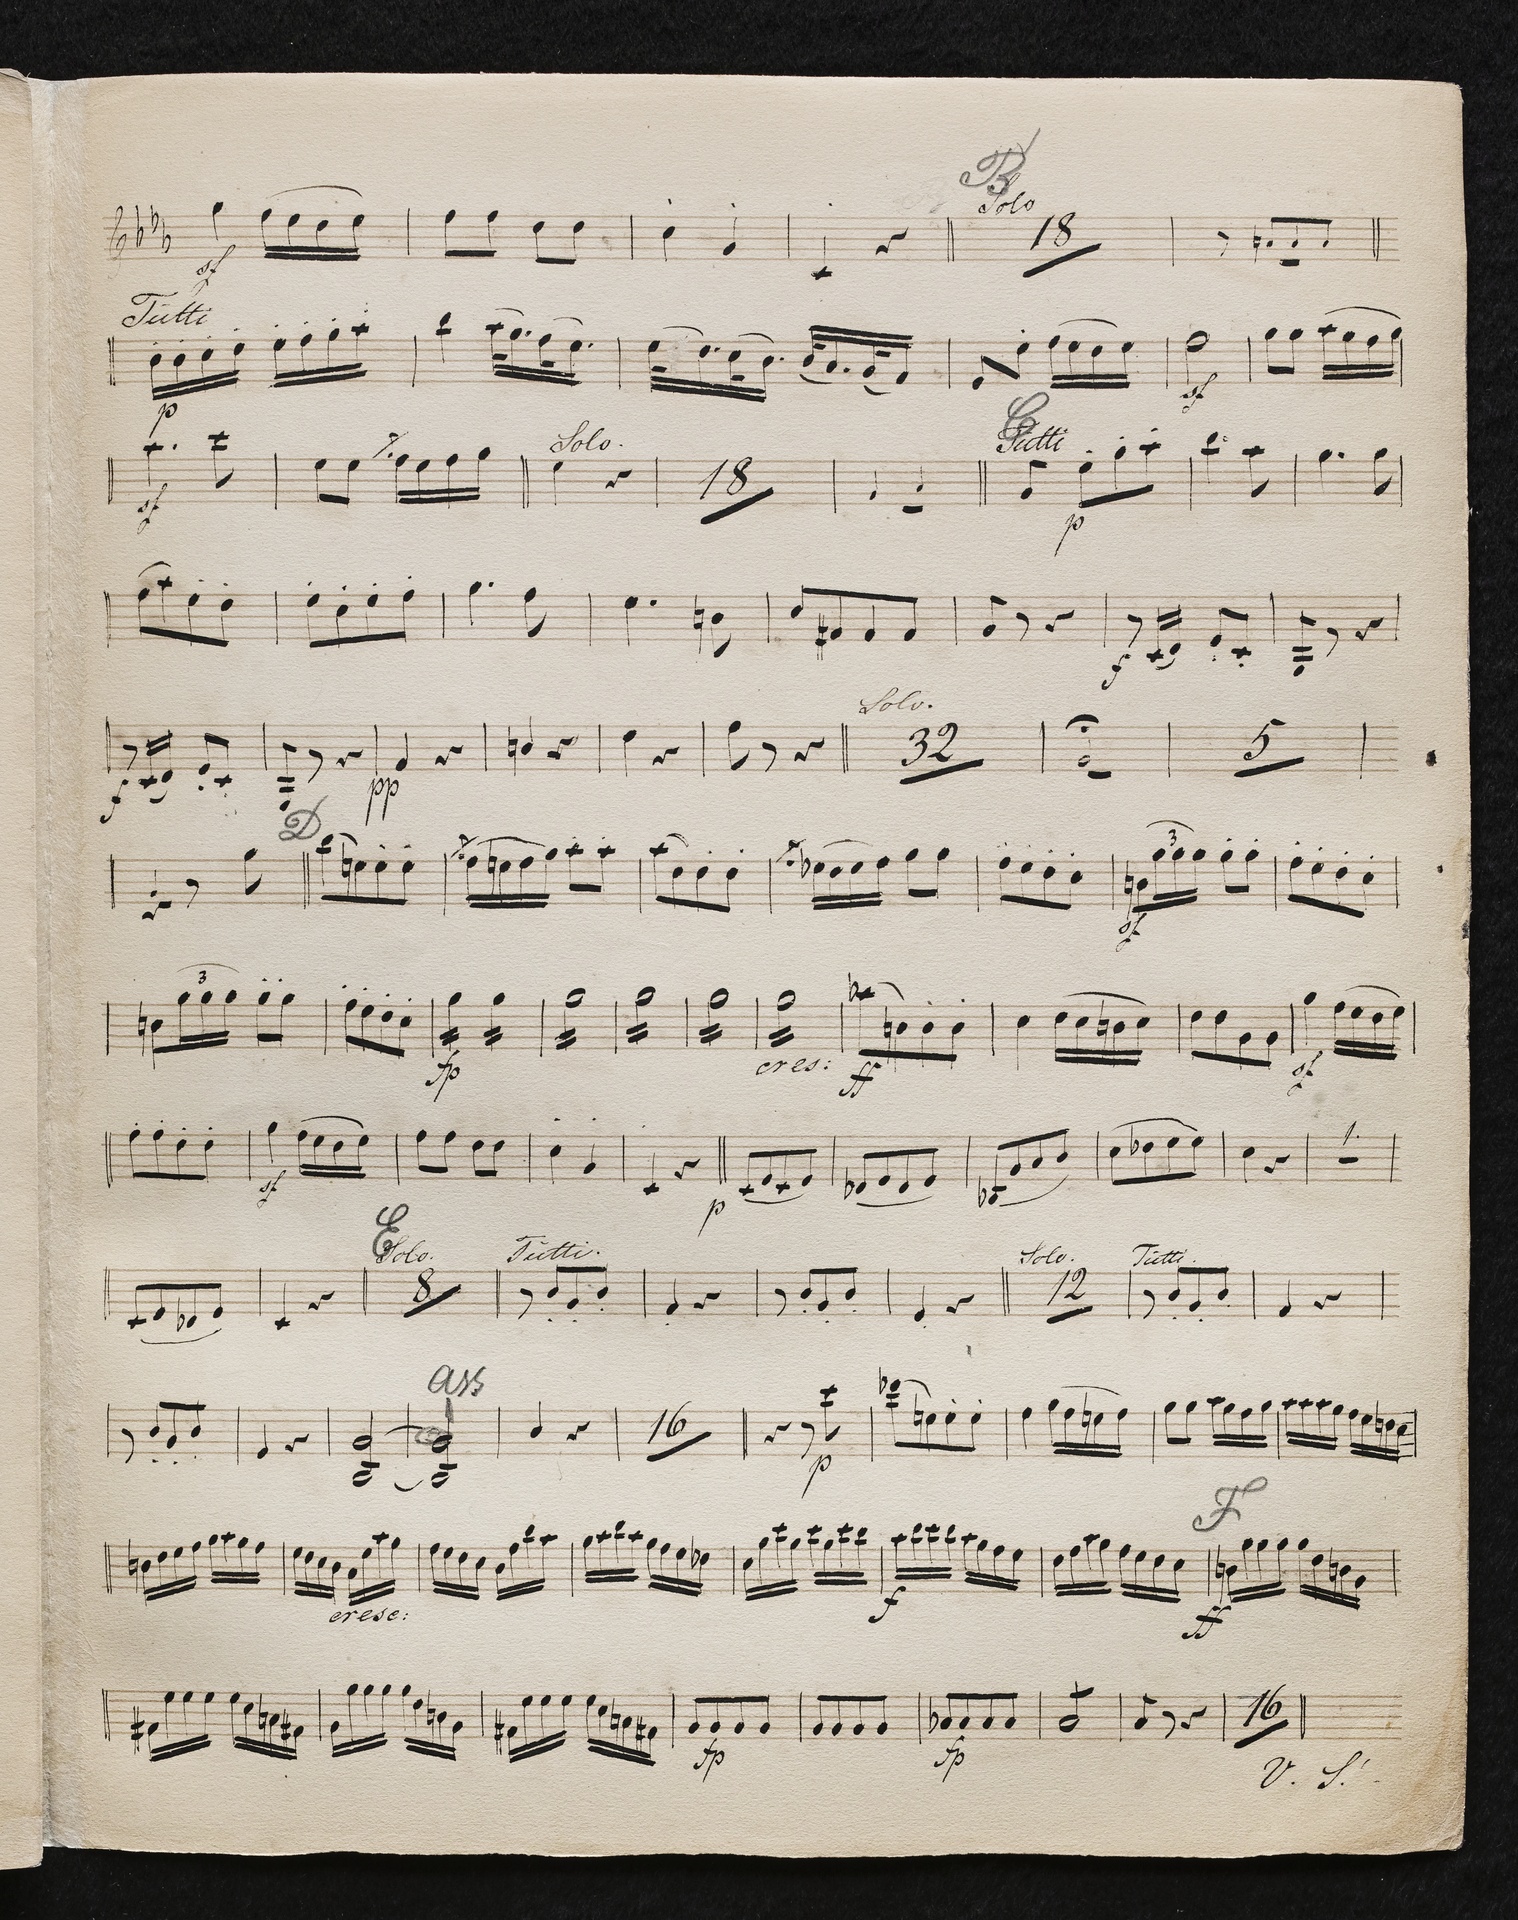 B
Solo
sf 18
Tutti
p sf
C
Solo. Tutti
sf 18 p
f
Solo.
f pp 32 5
D
3
sf
3
fp cres: ff sf
1.
sf p
E
Solo. Tutti. Solo. Tutti.
8 12
ass
16 p
F
cresc: f ff
16
fp fp
V. S.